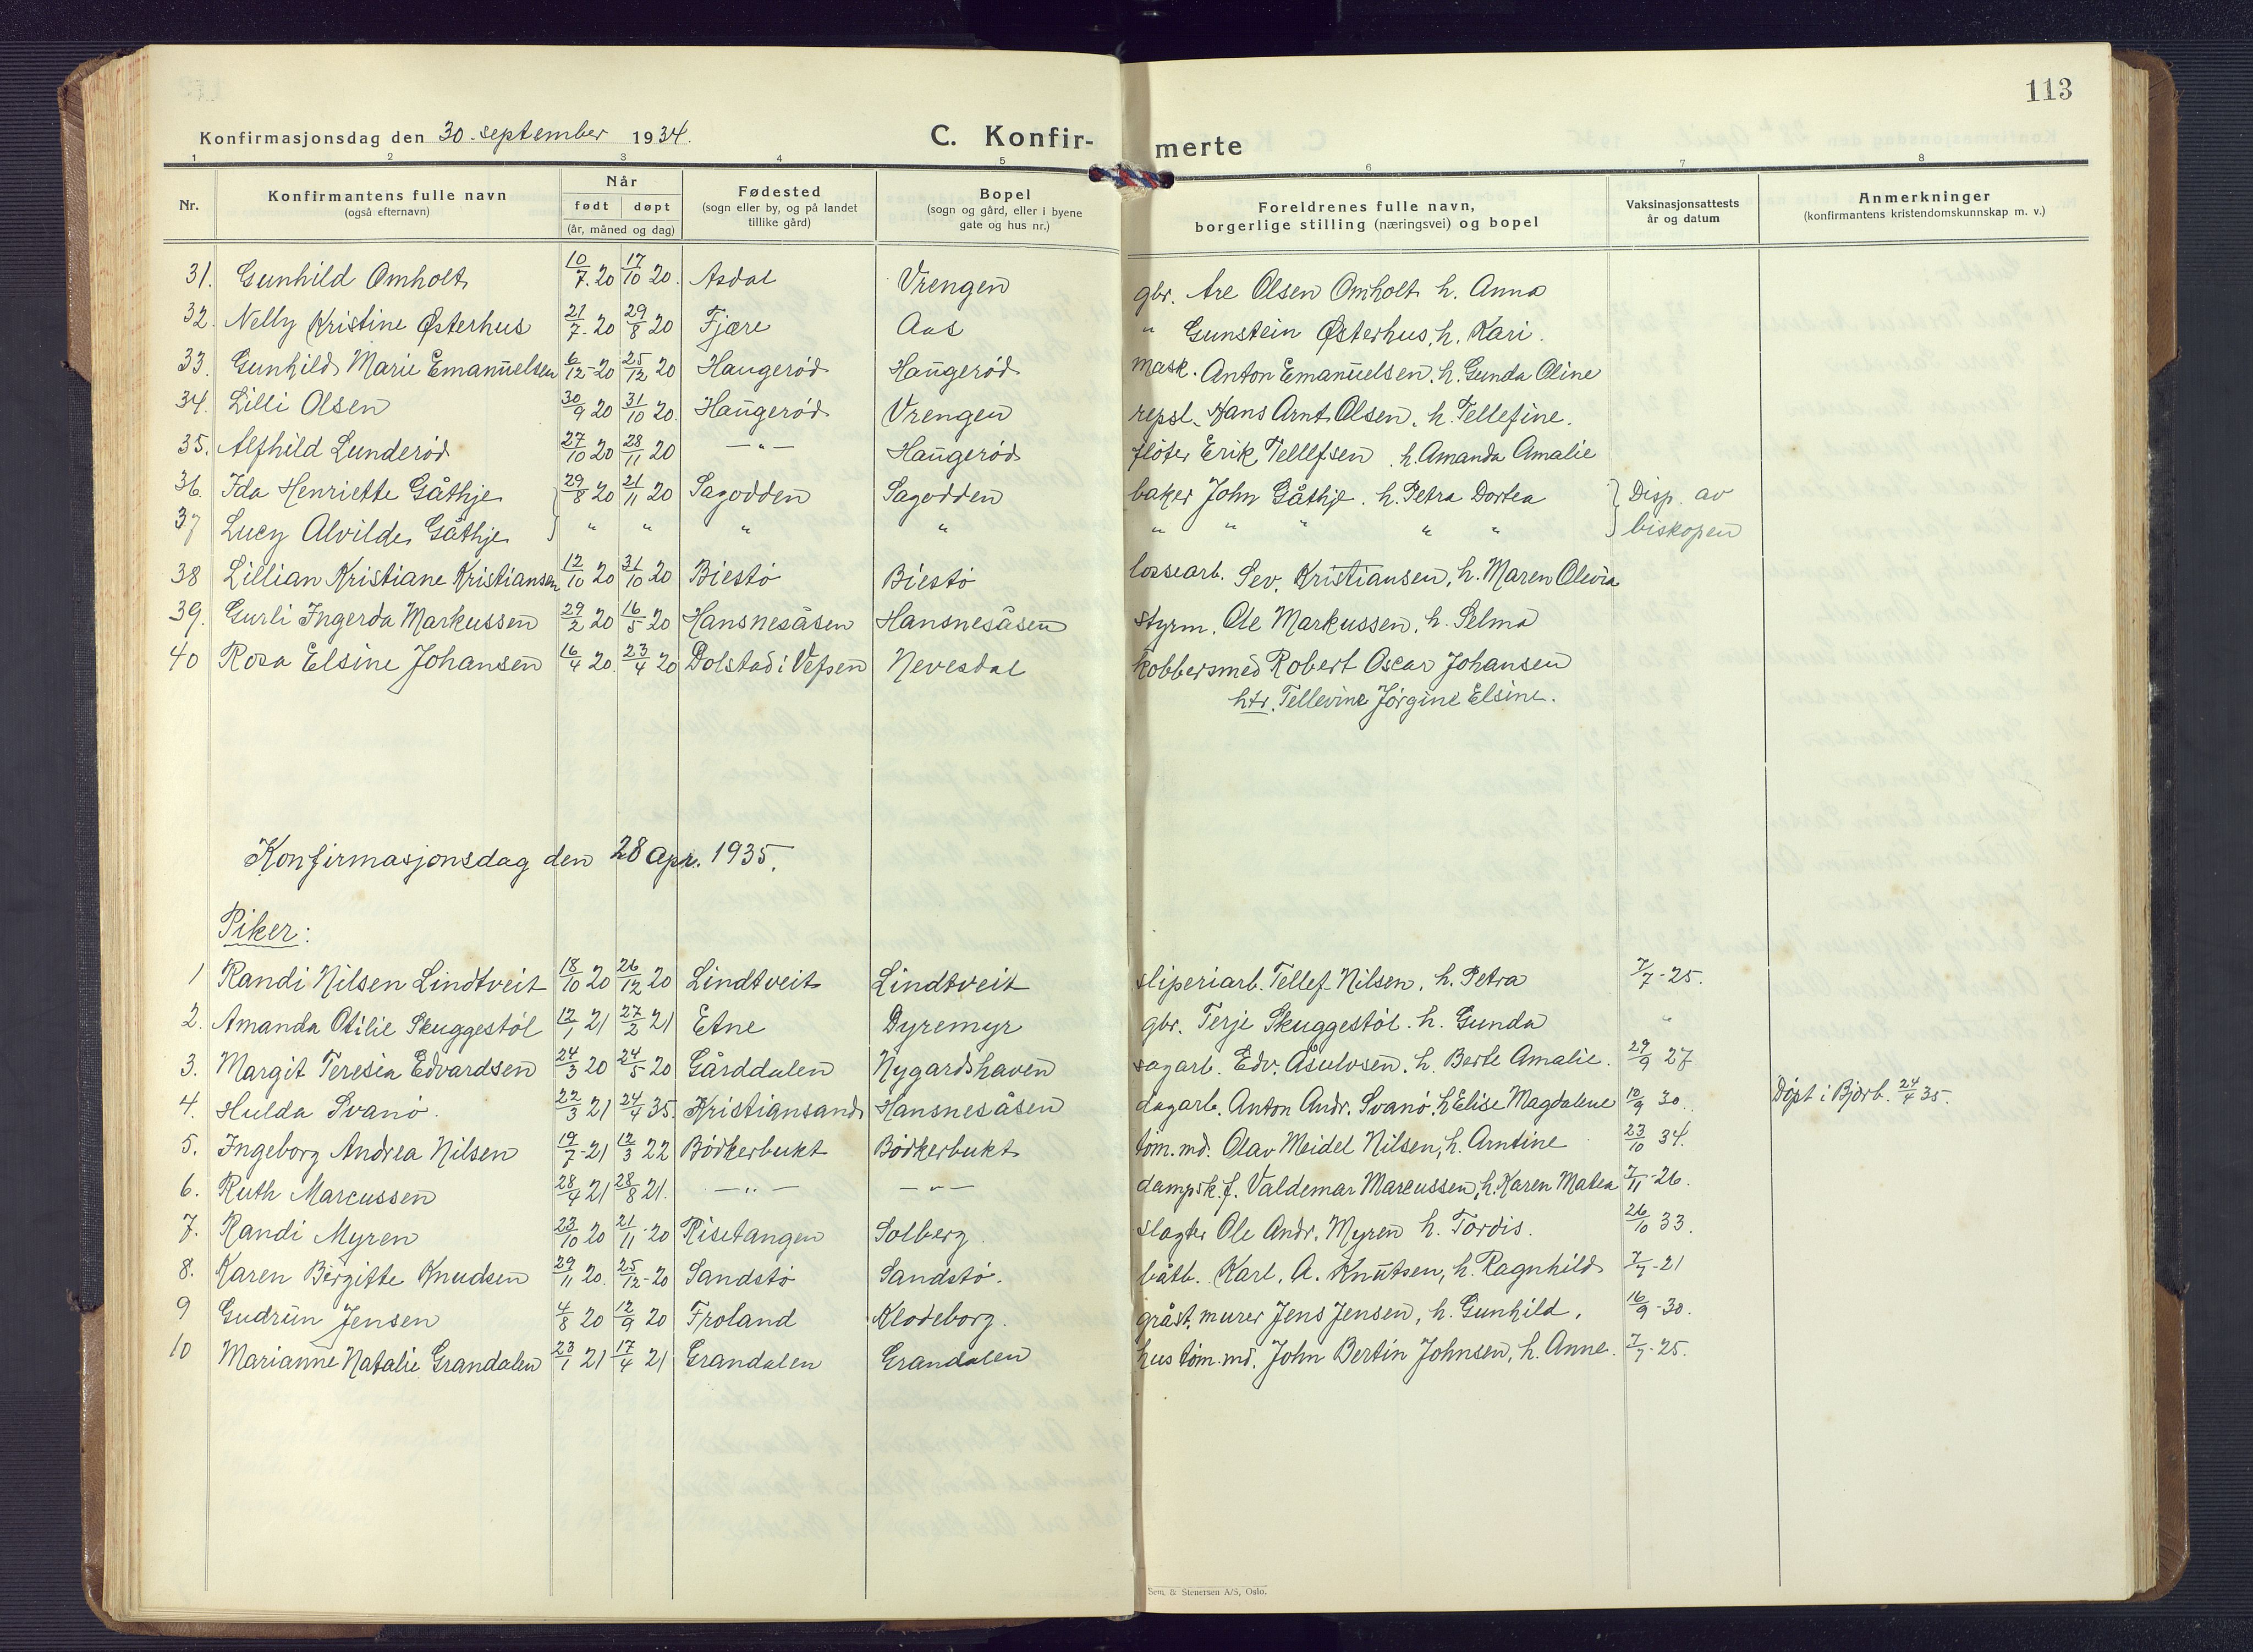 113
Konfirmasjonsdag den 30. september 1934.
C. Konfir- merte
1 2 3 4 5 6 7 8
Nr. Konfirmantens fulle navn (også efternavn) Når født døpt (år, måned og dag) Fødested (sogn eller by, og på landet tillike gård) Bopel (sogn og gård, eller i byene gate og hus nr.) Foreldrenes fulle navn, borgerlige stilling (næringsvei) og bopel Vaksinasjonsattests år og datum Anmerkninger (konfirmantens kristendomskunnskap m. v.)
31. Gunhild Omholt 10/7. 20 17/10 20. Asdal Vrengen gbr. Are Olsen Omholt h. Anna
32. Nelly Kristine Østerhus 21/7. 20 29/8 20 Fjære Aas " Gunstein Østerhus, h. Kari.
33. Gunhild Marie Emanuelsen 6/12-20 25/12 20 Haugerød Haugerød mask. Anton Emanuelsen. h. Gunda Oline
34. Lilli Olsen 30/9 20 31/10 20. Haugerød Vrengen repsl. Hans Arnt Olsen. h. Tellefine.
35. Alfhild Lunderød 27/10 20 28/11 20 —"— Haugerød fløter Erik Tellefsen. h. Amanda Amalie
36. Ida Henriette Gåthje 29/8 20 21/11 20 Sagodden Sagodden baker John Gåthje. h. Petra Dortea } Disp. av
37 Lucy Alvilde Gåthje } " " " " " " " " " } biskopen
38 Lillian Kristiane Kristiansen 12/10 20 31/10 20 Biestø Biestø lossearb. Sev. Kristiansen, h. Maren Olevia
39. Gurli Ingerda Markussen 29/2 20 16/5 20 Hansnesåsen Hansnesåsen styrm. Ole Markussen. h. Selma
40 Rosa Elsine Johansen 16/4 20. 23/4 20 Dolstad i Vefsen Nevesdal kobbersmed Robert Oscar Johansen
htr. Tellevine Jørgine Elsine.
Konfirmasjonsdag den 28 Apr. 1935.
Piker:
1 Randi Nilsen Lindtveit 18/10 20 26/12 20 Lindtveit Lindtveit sliperiarb. Tellef Nilsen, h. Petra 7/7-25.
2. Amanda Otilie Skuggestøl 12/1 21 27/2 21 Etne Dyremyr gbr. Terje Skuggestøl. h. Gunda "
3. Margit Teresia Edvardsen 24/3 20 24/5 20 Gårddalen Nygardshaven sagarb. Edv. Åsulvsen. h. Berte Amalie. 29/9 27
4. Hulda Svanø. 22/3 21 24/4 35. Kristiansand Hansnesåsen dagarb. Anton Andr. Svanø. h Elise Magdalene 10/9 30. Døpt i Bjorb. 24/4 35.
5. Ingeborg Andrea Nilsen 19/7-21 12/3 22 Bødkerbukt Bødkerbukt tøm. md. Olav Meidel Nilsen, h. Arntine 23/10 34.
6. Ruth Marcussen 28/4 21 28/8 21. —"— —"— dampsk. f. Valdemar Marcussen, h. Karen Matea 7/11-26.
7. Randi Myren 23/10 20 21/11-20 Risetangen Solberg. slagter Ole Andr. Myren h. Tordis. 26/10 33.
8. Karen Birgitte Knudsen 29/11 20. 25/12-20 Sandstø Sandstø. båtb. Karl. A. Knutsen, h. Ragnhild 7/7-21
9 Gudrun Jensen 4/8 20 12/9 20 Froland Klodeborg. gråst. murer Jens Jensen, h. Gunhild. 16/9-30.
10 Marianne Natalie Grandalen 23/1 21 17/4 21 Grandalen Grandalen hus tøm. md. John Bertin Johnsen, h. Anne. 7/7-25.
Sem & Stenersen A/S, Oslo.